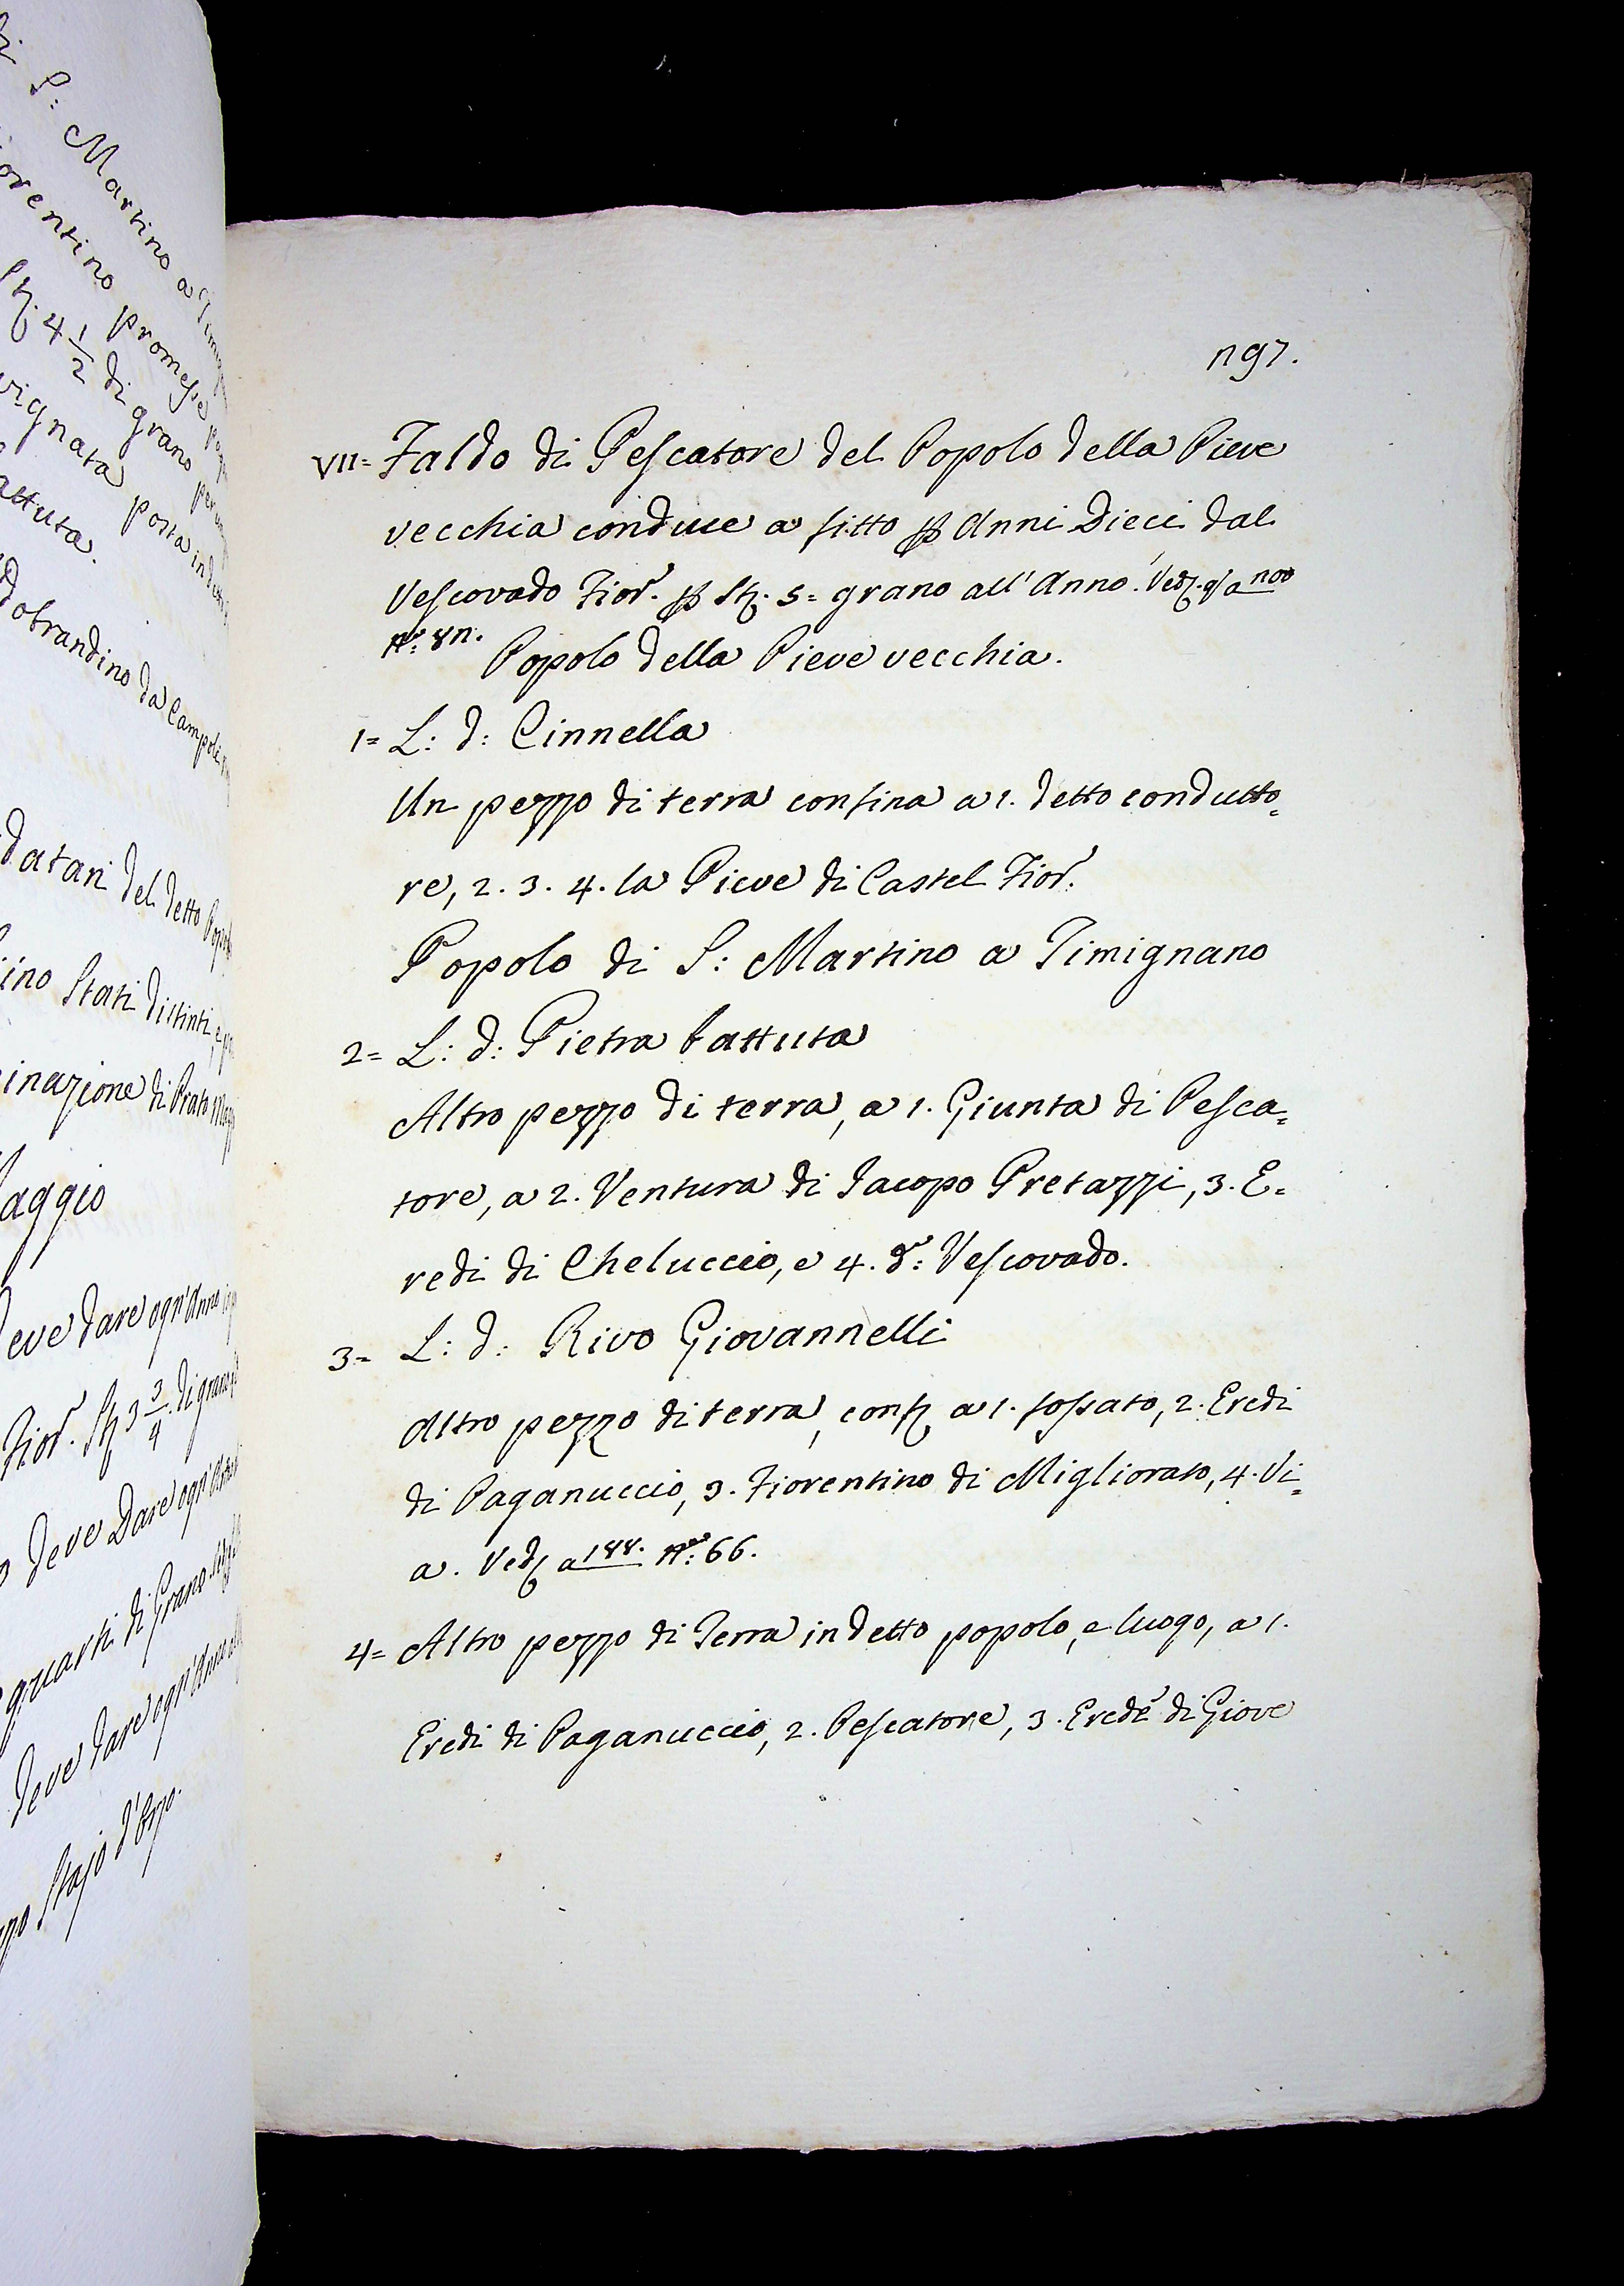 S: Martino a Timig
orentino promesse pag
Stj. 4 1/2 di grano per un
vignata posta in detto
attuta.
dobrandino da Campoli
datari del detto Popolo
ino Stati distinti, e
inazione di Prato Magg
aggio
eve dare ogn'Anno
Fior. Stj 3 3/4 di grano
deve Dare ogn'Anno
quarti di Grano
deve dare ogn'Anno
Stajo d'Orzo.
n97.
VII= Faldo di Pescatore del Popolo della Pieve
vecchia conduce a fitto p Anni Dieci dal
Vescovado Fior. p Stj. 5= grano all'Anno. Ved. q/ a n00
N.° 8n.
Popolo della Pieve vecchia.
1= L: d: Cinnella
Un pezzo di terra confina a 1. detto condutto=
re, 2. 3. 4. la Pieve di Castel Fior.
Popolo di S: Martino a Timignano
2= L: d: Pietra battuta
Altro pezzo di terra, a 1. Giunta di Pesca=
tore, a 2. Ventura di Iacopo Pretazzi, 3. E=
redi di Cheluccio, e 4. d.° Vescovado.
3= L: d: Rivo Giovannelli
Altro pezzo di terra, conf. a 1. fossato, 2. Eredi
di Paganuccio, 3. Fiorentino di Migliorato, 4. Vi=
a. Ved. a 188. N.° 66.
4= Altro pezzo di Terra in detto popolo, e luogo, a 1.
Eredi di Paganuccio, 2. Pescatore, 3. Erede di Giove